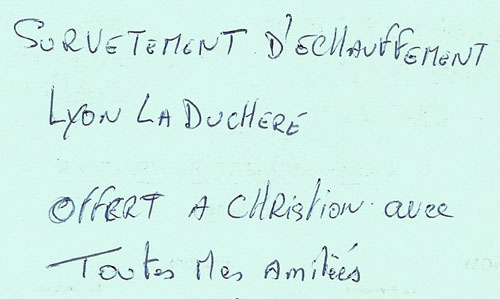 SURVETEMENT D'ECHAUFFEMENT
LYON LA DUCHERE
OFFERT A CHRistion avec
Toutes Mes Amitiés